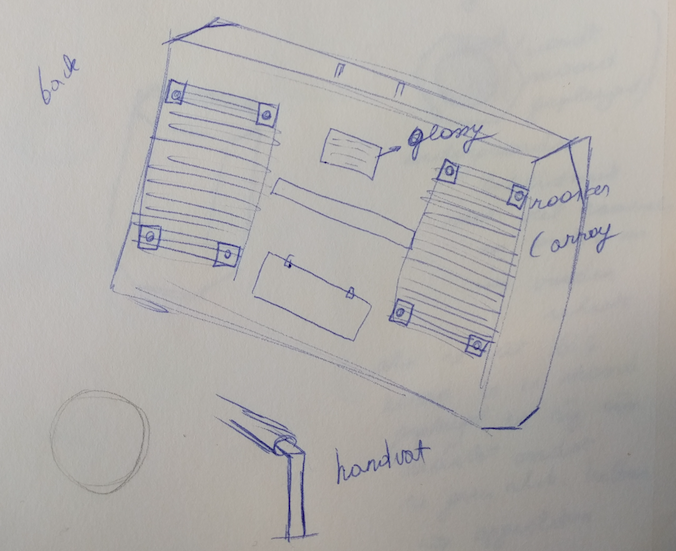 back
glossy
rooster
(array
handvat